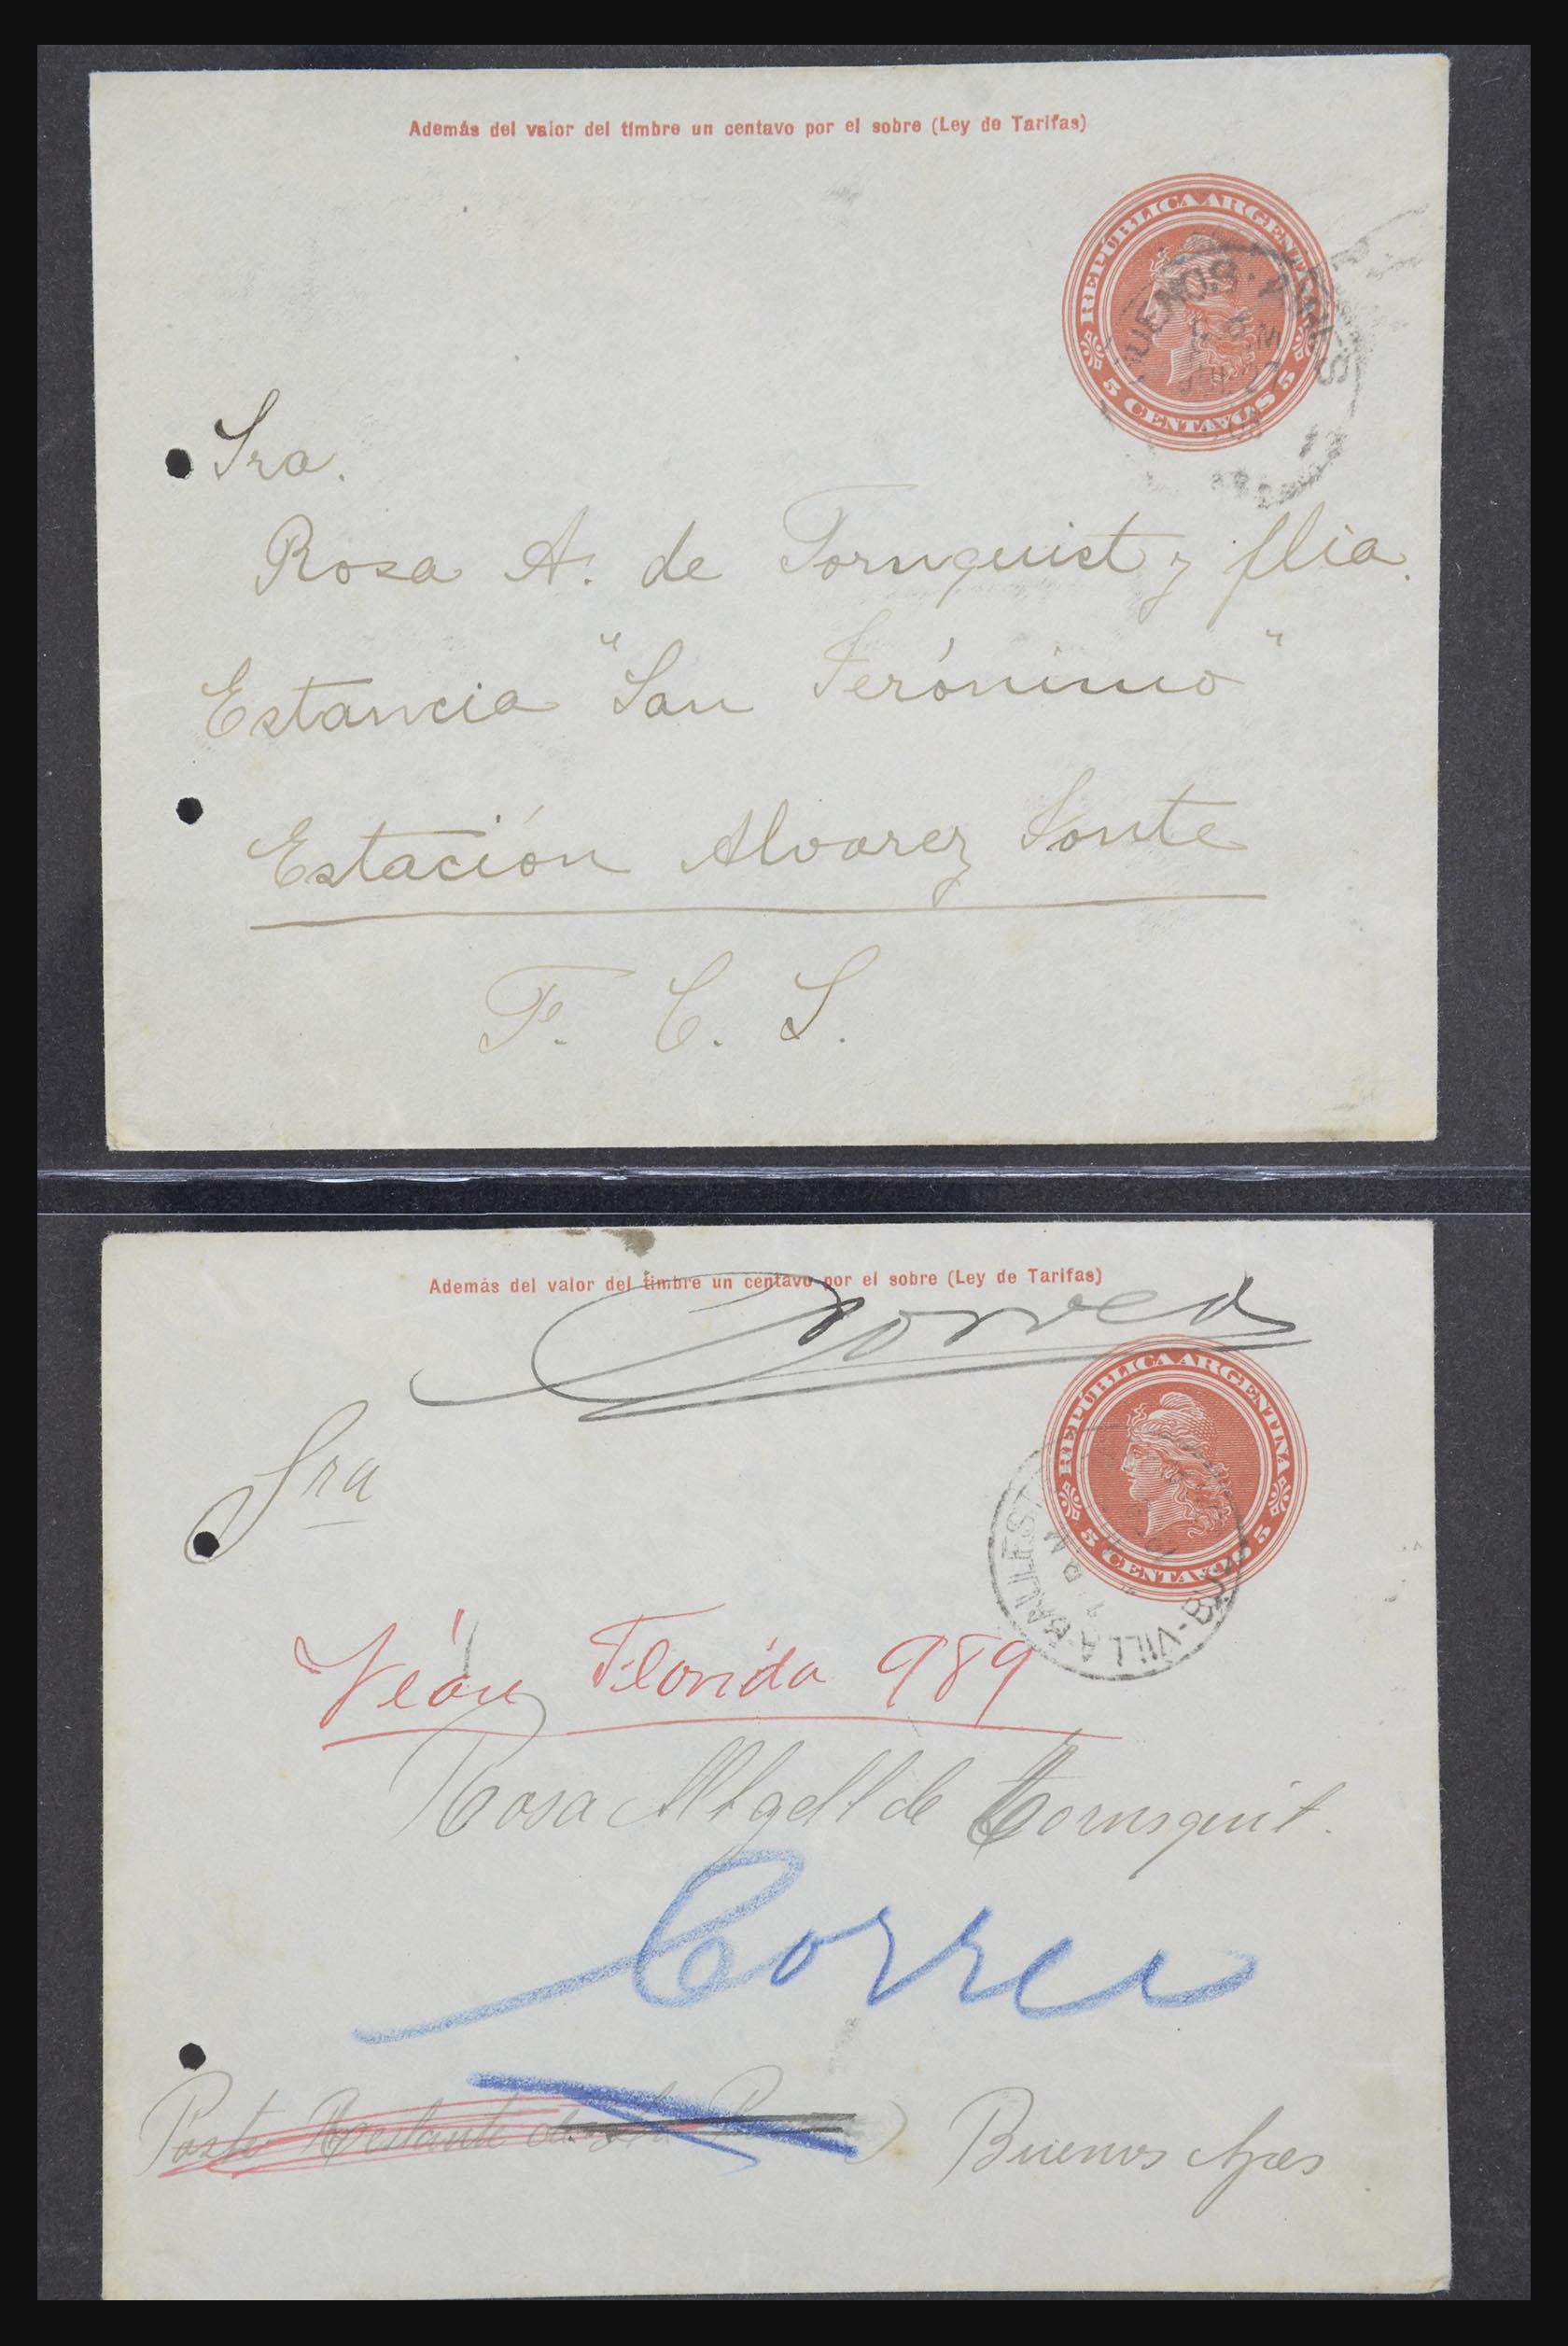 Además del valor del timbre un centavo por el sobre (Ley de Tarifas)
REPÚBLICA ARGENTINA
5 CENTAVOS 5
BUENOS·AIRES
Sra.
Rosa A. de Tornquist y flia.
Estancia "San Jerónimo"
Estación Alvarez Jonte
F. C. S.
Además del valor del timbre un centavo por el sobre (Ley de Tarifas)
Correo
REPÚBLICA ARGENTINA
5 CENTAVOS 5
VILLA·BALLEST
Sra
Florida 989
Rosa Altgelt de Tornsquit.
Correo
Poste Restante
Buenos Ayres